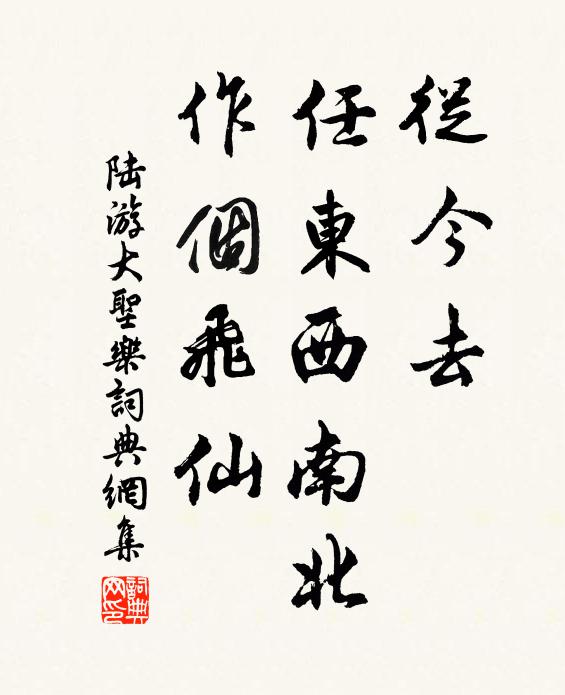 從今去
任東西南北
作個飛仙
陸游大聖樂詞典網集
詞典網印